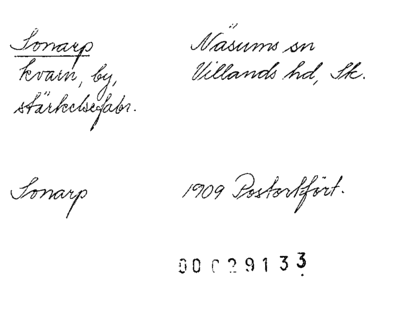 Sonarp Näsums sn
kvarn, by, Villands hd, Sk.
stärkelsefabr.
Sonarp 1909 Postortsfört.
00029133